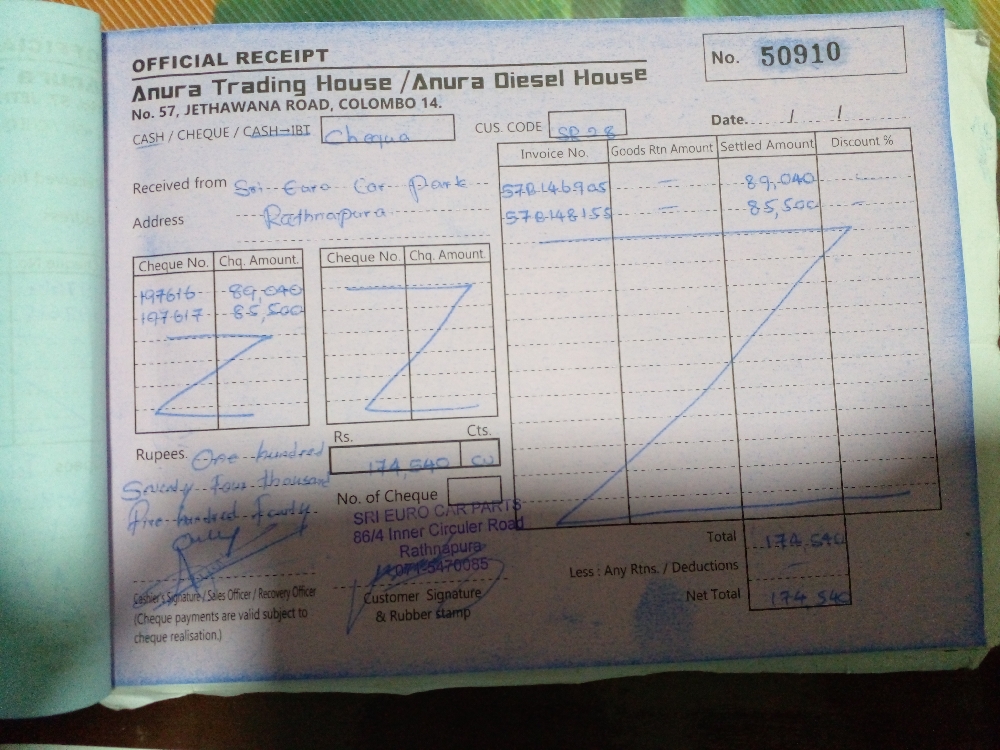 OFFICIAL RECEIPT
No. 50910
Anura Trading House / Anura Diesel House
No. 57, JETHAWANA ROAD, COLOMBO 14.
CASH / CHEQUE / CASH→IBT Cheque
CUS. CODE SR 28
Date. / /
Received from Sri Euro Car Park
Address Rathnapura
Invoice No. Goods Rtn Amount Settled Amount Discount %
57B146905 – 89,040 -
57B148155 – 85,500 -
Cheque No. Chq. Amount. Cheque No. Chq. Amount.
197616 89,040
197617 85,500
Rupees. One hundred
Seventy four thousand
Five hundred fourty
only
Rs. Cts.
174,540
No. of Cheque
SRI EURO CAR PARTS
86/4 Inner Circuler Road
Rathnapura
5470085
Cashier's Signature / Sales Officer / Recovery Officer
(Cheque payments are valid subject to
cheque realisation.)
Customer Signature
& Rubber stamp
Total 174,540
Less : Any Rtns. / Deductions –
Net Total 174,540